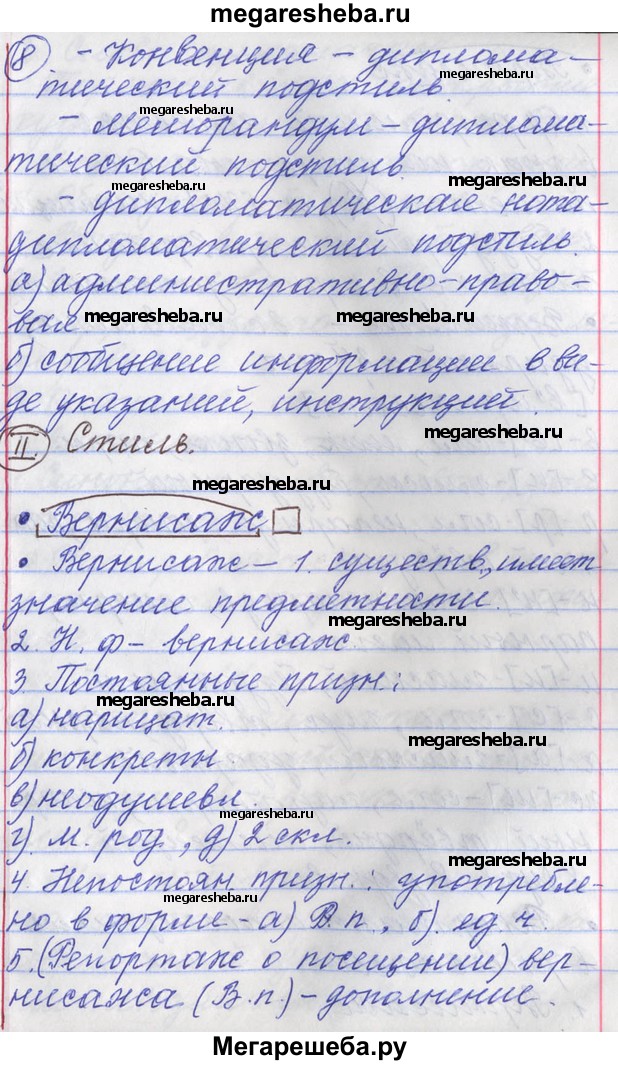 megaresheba.ru
8 - Конвенция - диплома-
тический подстиль
megaresheba.ru
- Меморандум - диплома-
тический подстиль.
megaresheba.ru
megaresheba.ru
- дипломатическая нота-
дипломатический подстиль.
а) административно-право-
вая
megaresheba.ru
megaresheba.ru
б) сообщение информации в ви-
де указаний, инструкций.
megaresheba.ru
II. Стиль.
megaresheba.ru
• Вернисаж
• Вернисаж - 1. существ., имеет
значение предметности.
megaresheba.ru
2. Н. ф - вернисаж
3 Постоянные призн.:
megaresheba.ru
а) нарицат.
megaresheba.ru
б) конкретн.
в) неодушевл.
megaresheba.ru
г) м. род, д) 2 скл.
megaresheba.ru
4. Непостоян. призн.: употребле-
megaresheba.ru
но в форме - а) В.п., б). ед ч.
5. (Репортаж о посещении) вер-
нисажа (В.п.) - дополнение.
Мегарешеба.ру